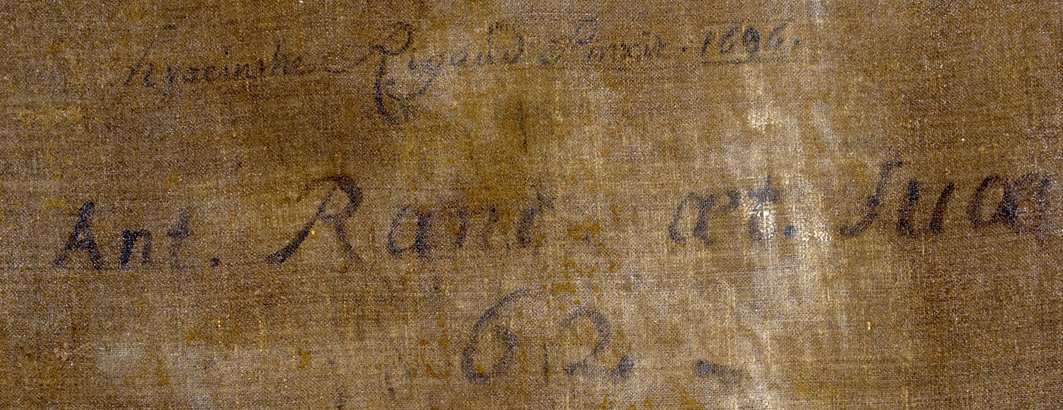 hyacinthe Rigaud Pinxit. 1696.
Ant. Ranc æt. Suæ
62.